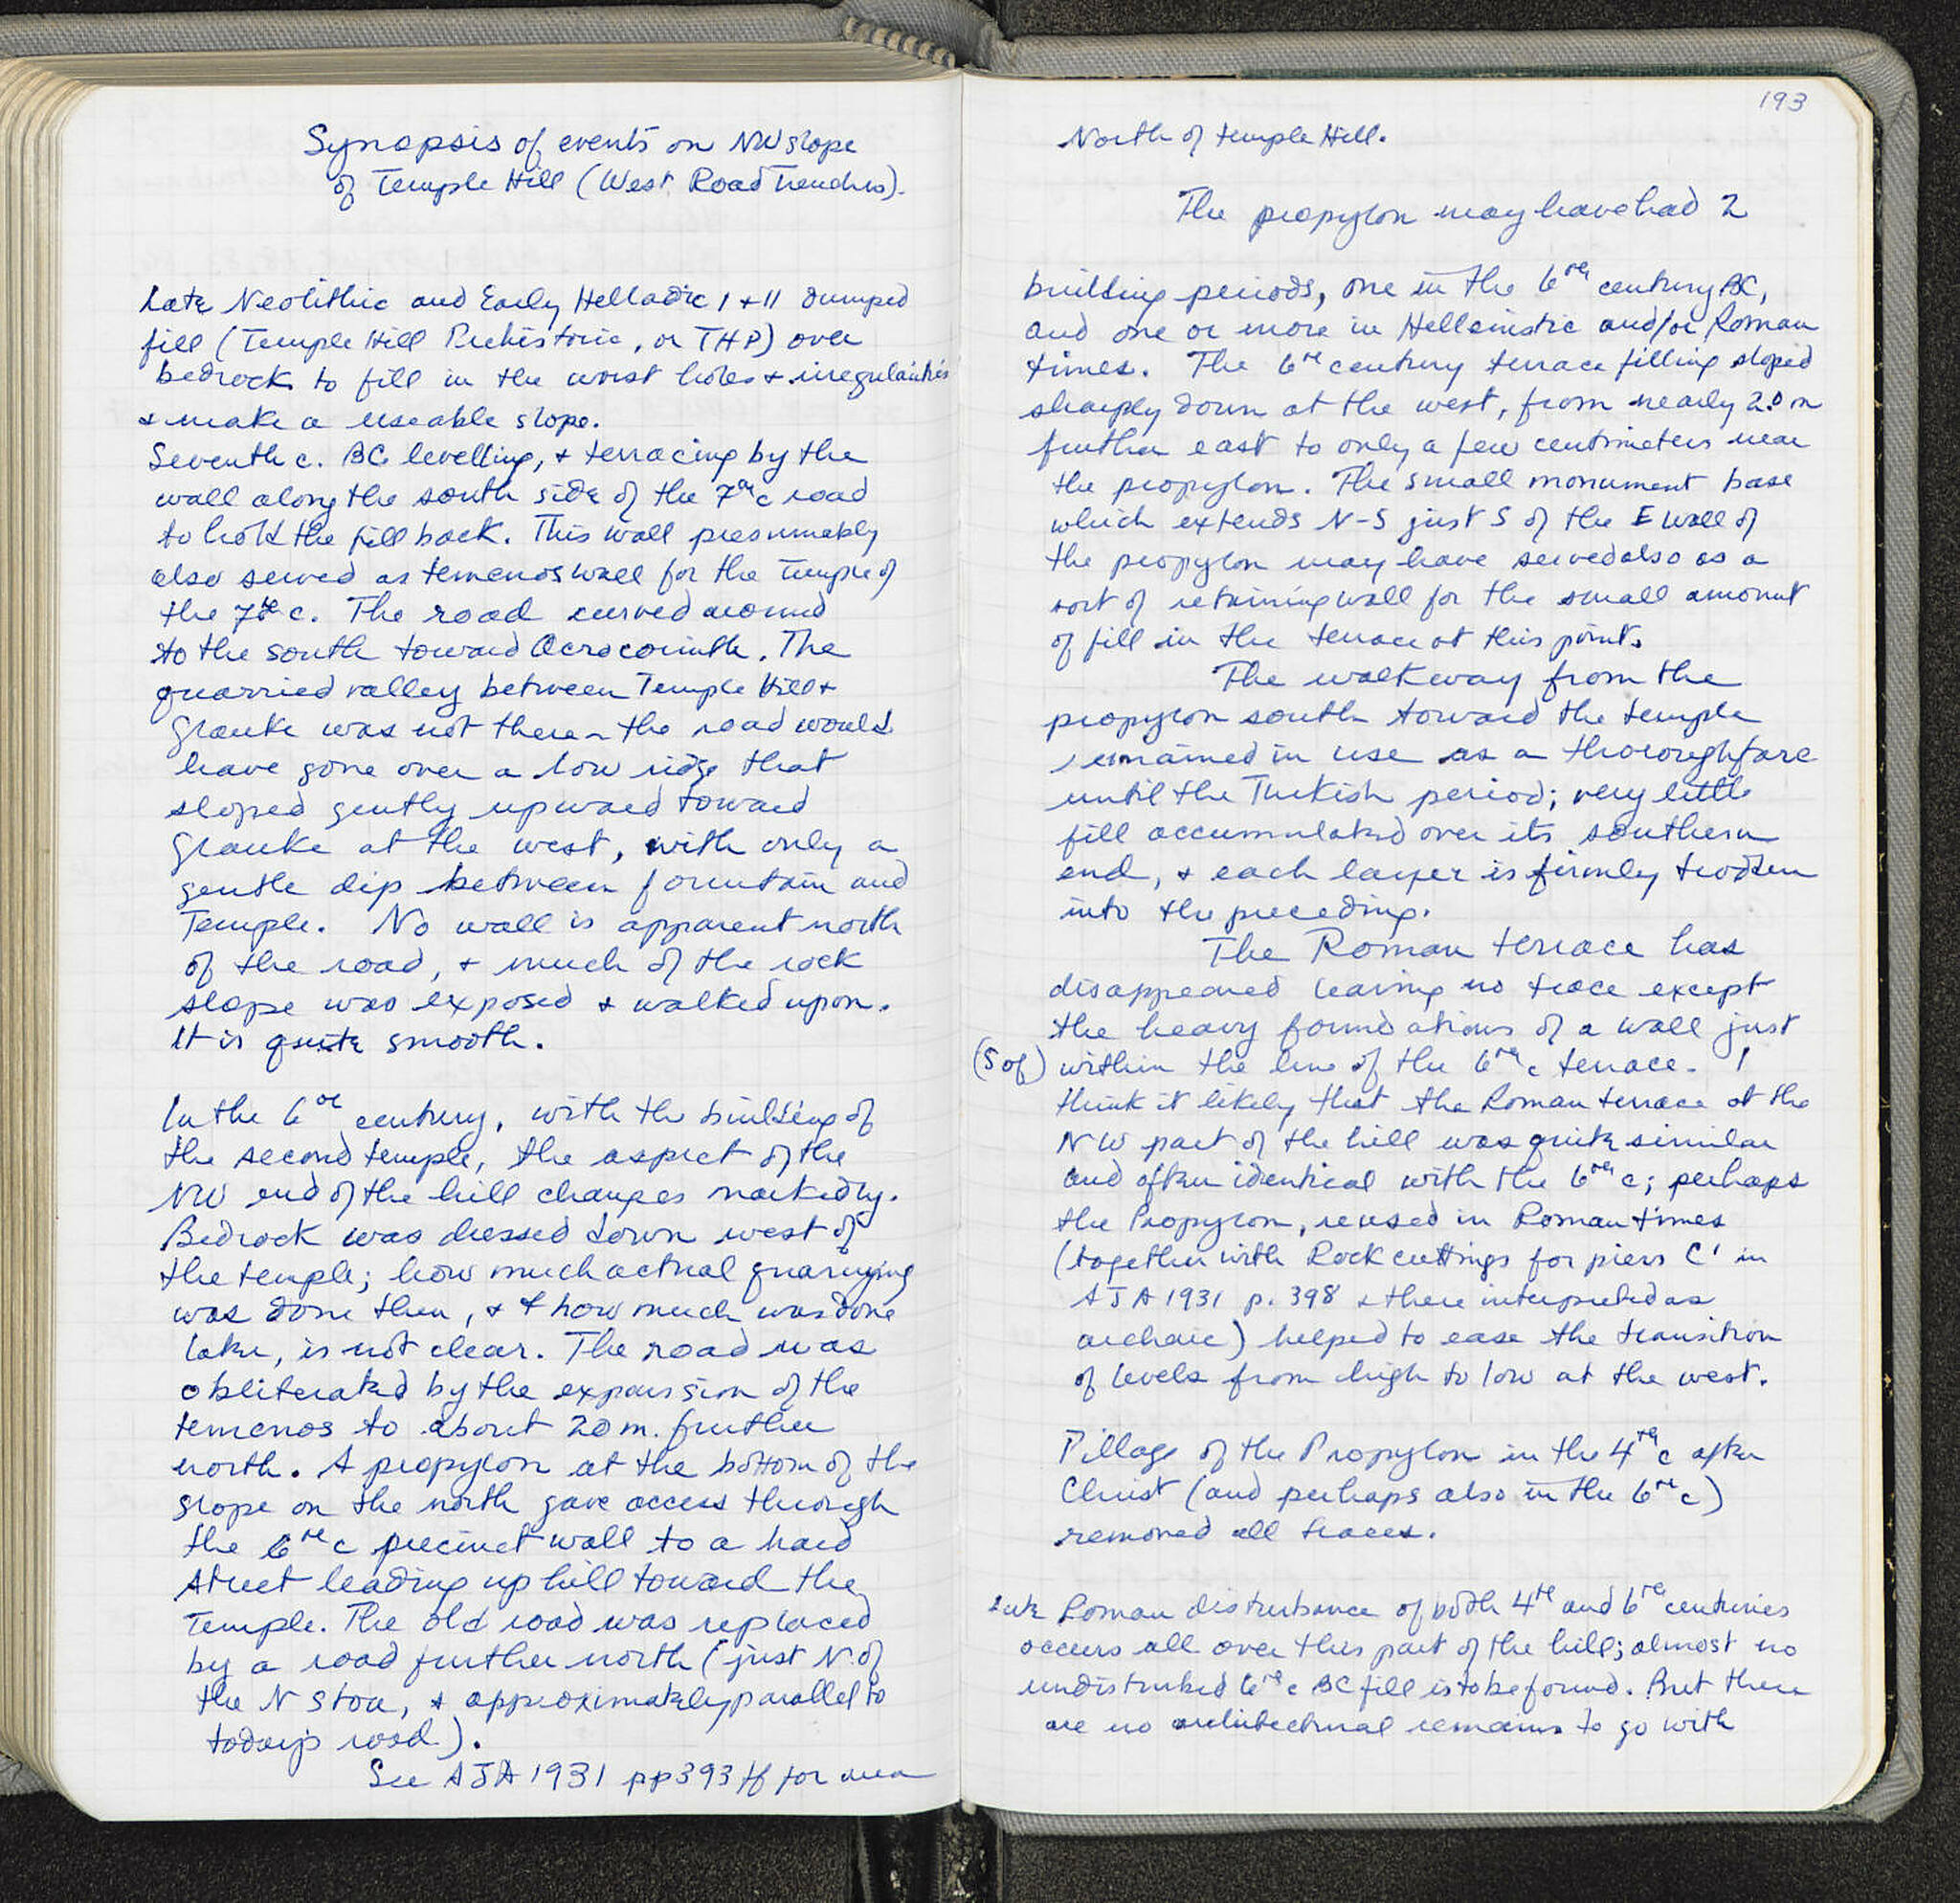 Synopsis of events on NW slope
of Temple Hill (West Road Trenches).
Late Neolithic and Early Helladic I + II dumped
fill (Temple Hill Prehistoric, or THP) over
bedrock to fill in the worst holes + irregularities
+ make a useable slope.
Seventh c. BC levelling, + terracing by the
wall along the south side of the 7th c road
to hold the fill back. This wall presumably
also served as temenos wall for the Temple of
the 7th c. The road curved around
to the south toward Acrocorinth. The
quarried valley between Temple Hill +
Glauke was not there - the road would
have gone over a low ridge that
sloped gently upward toward
Glauke at the west, with only a
gentle dip between fountain and
Temple. No wall is apparent north
of the road, + much of the rock
slope was exposed + walked upon.
It is quite smooth.
In the 6th century, with the building of
the second temple, the aspect of the
NW end of the hill changes markedly.
Bedrock was dressed down west of
the temple; how much actual quarrying
was done then, + how much was done
later, is not clear. The road was
obliterated by the expansion of the
temenos to about 20 m. further
north. A propylon at the bottom of the
slope on the north gave access through
the 6th c precinct wall to a hard
street leading up hill toward the
Temple. The old road was replaced
by a road further north (just N. of
the N Stoa, + approximately parallel to
today's road).
See AJA 1931 pp 393 ff for area
193
North of Temple Hill.
The propylon may have had 2
building periods, one in the 6th century BC,
and one or more in Hellenistic and/or Roman
times. The 6th century terrace filling sloped
sharply down at the west, from nearly 2.0 m
further east to only a few centimeters near
the propylon. The small monument base
which extends N-S just S of the E wall of
the propylon may have served also as a
sort of retaining wall for the small amount
of fill in the terrace at this point.
The walkway from the
propylon south toward the temple
remained in use as a thoroughfare
until the Turkish period; very little
fill accumulated over its southern
end, + each layer is firmly trodden
into the preceding.
The Roman terrace has
disappeared leaving no trace except
the heavy foundations of a wall just
(S of) within the line of the 6th c terrace. I
think it likely that the Roman terrace at the
NW part of the hill was quite similar
and often identical with the 6th c; perhaps
the Propylon, reused in Roman times
(together with Rock cuttings for piers C' in
AJA 1931 p. 398 + there interpreted as
archaic) helped to ease the transition
of levels from high to low at the west.
Pillage of the Propylon in the 4th c after
Christ (and perhaps also in the 6th c)
removed all traces.
Late Roman disturbance of both 4th and 6th centuries
occurs all over this part of the hill; almost no
undisturbed 6th c BC fill is to be found. But there
are no architectural remains to go with